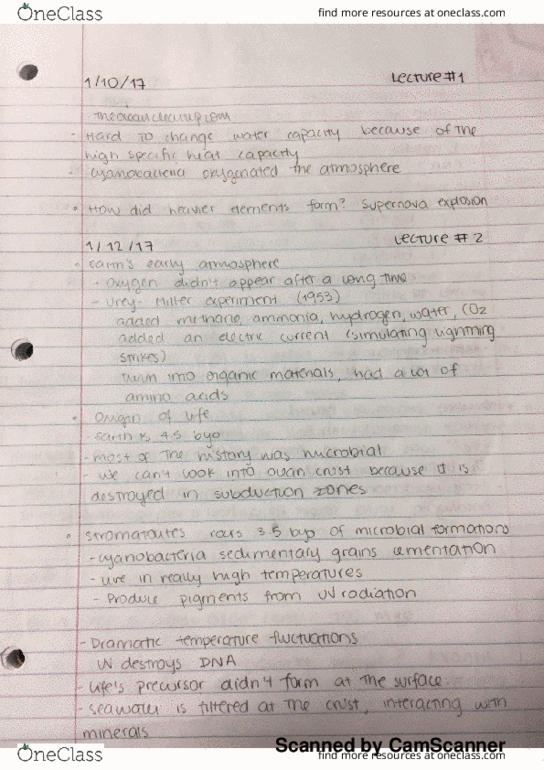 OneClass
find more resources at oneclass.com
1/10/17
Lecture #1
theoceancleanup.com
- Hard to change water capacity because of the
high specific heat capacity
- cyanobacteria oxygenated the atmosphere
• How did heavier elements form? Supernova explosion
1/12/17
Lecture # 2
• Earth's early atmosphere
- Oxygen didn't appear after a long time
- Urey-Miller experiment (1953)
added methane, ammonia, hydrogen, water, CO2
added an electric current (simulating lightning
strikes)
them into organic materials, had a lot of
amino acids
• Origin of life
- Earth is 4.5 byo
- most of the history was microbial
- We can't look into ocean crust because it is
destroyed in subduction zones
• Stromatolites rocks 3.5 byo of microbial formations
- cyanobacteria sedimentary grains cementation
- live in really high temperatures
- Produce pigments from UV radiation
- Dramatic temperature fluctuations
UV destroys DNA
- life's precursor didn't form at the surface
- seawater is filtered at the crust, interacting with
minerals
Scanned by CamScanner
OneClass
find more resources at oneclass.com